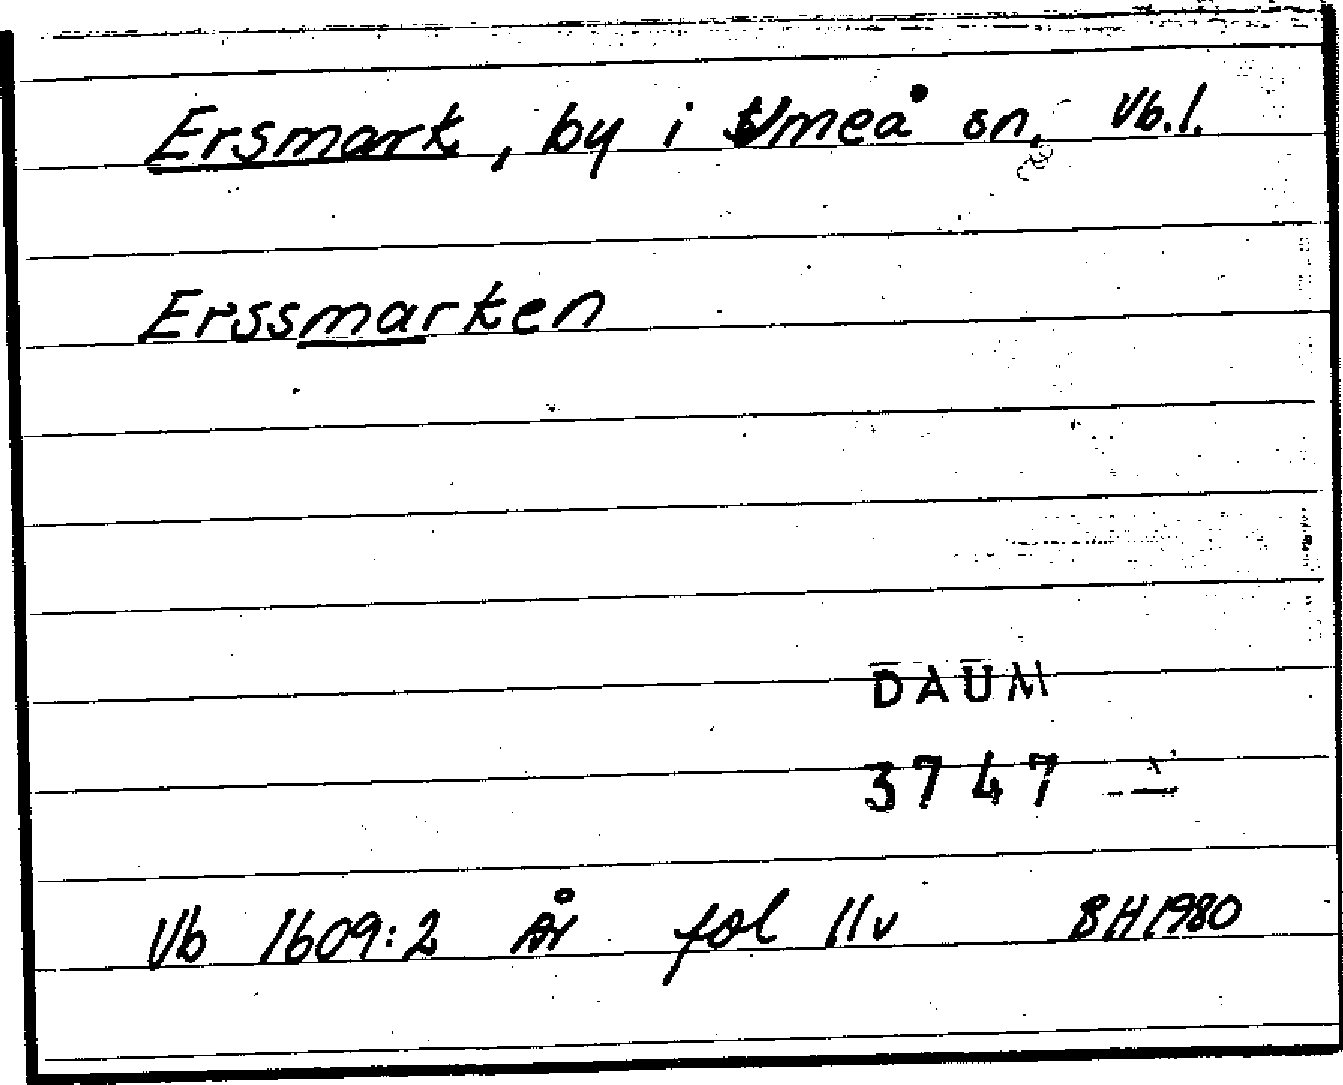 Ersmark, by i Umeå sn, Vb.l.
Erssmarken
DAUM
3747
Vb 1609:2 År fol 11v BH1980